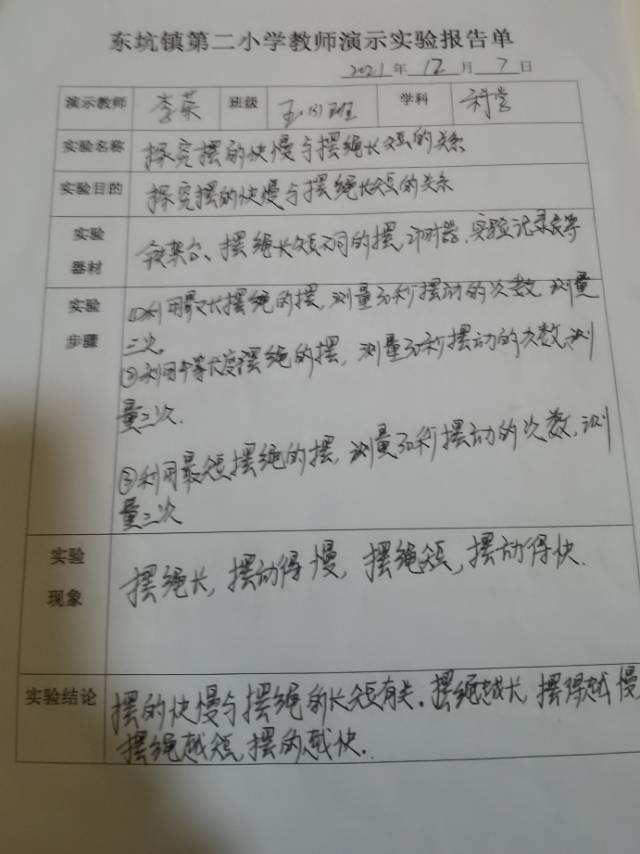 东坑镇第二小学教师演示实验报告单
2021年12月7日
演示教师 李英 班级 五(3)班 学科 科学
实验名称 探究摆的快慢与摆绳长短的关系
实验目的 探究摆的快慢与摆绳长短的关系
实验器材 铁架台、摆绳长短不同的摆、计时器、实验记录表等
实验步骤 ①利用最长摆绳的摆,测量30秒摆动的次数,测量
三次。
②利用中等长度摆绳的摆,测量30秒摆动的次数,测
量三次.
③利用最短摆绳的摆,测量30秒摆动的次数,测
量三次
实验现象 摆绳长,摆动得慢,摆绳短,摆动得快.
实验结论 摆的快慢与摆绳的长短有关.摆绳越长,摆得越慢
摆绳越短,摆的越快.